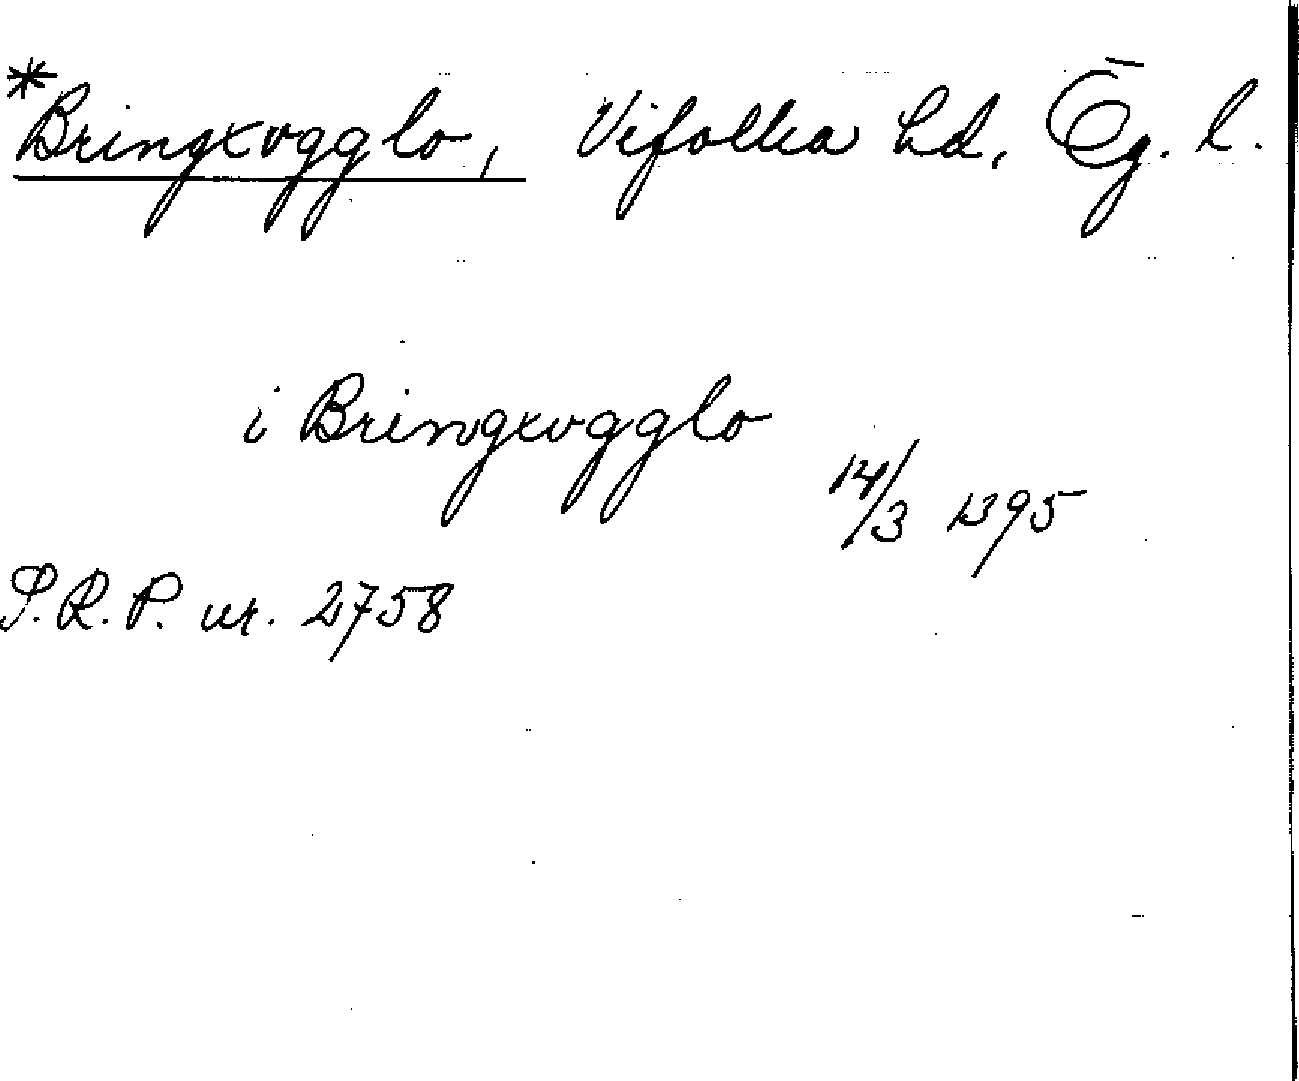 *Bringxvgglo, Vifolka hd, Ög. l.
i Bringxvgglo
14/3 1395
S.R.P. nr. 2758